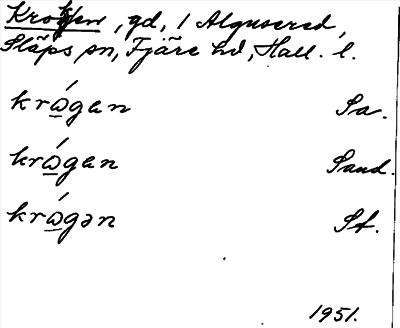 Kroken, gd, 1 Algusered,
Släps sn, Fjäre hd, Hall. l.
krώgen Sa.
krώgen Sand.
krώgən St.
1951.